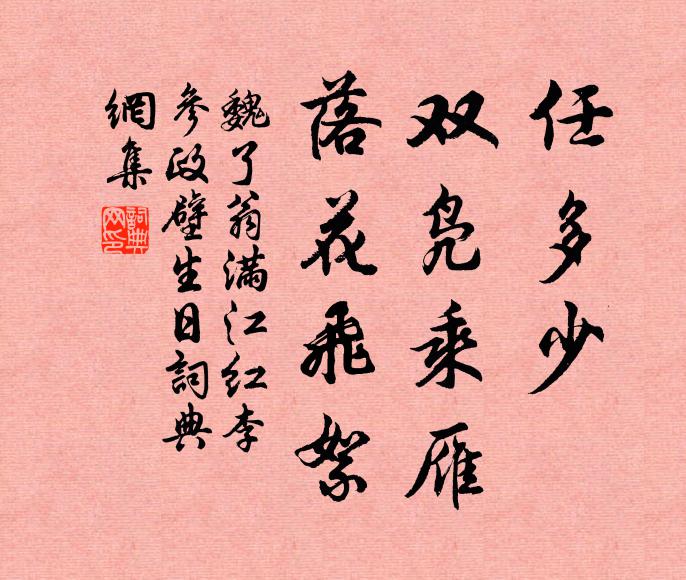 任多少
双凫乘雁
落花飛絮
魏了翁滿江红李
參政壁生日詞典
網集
詞典
网印